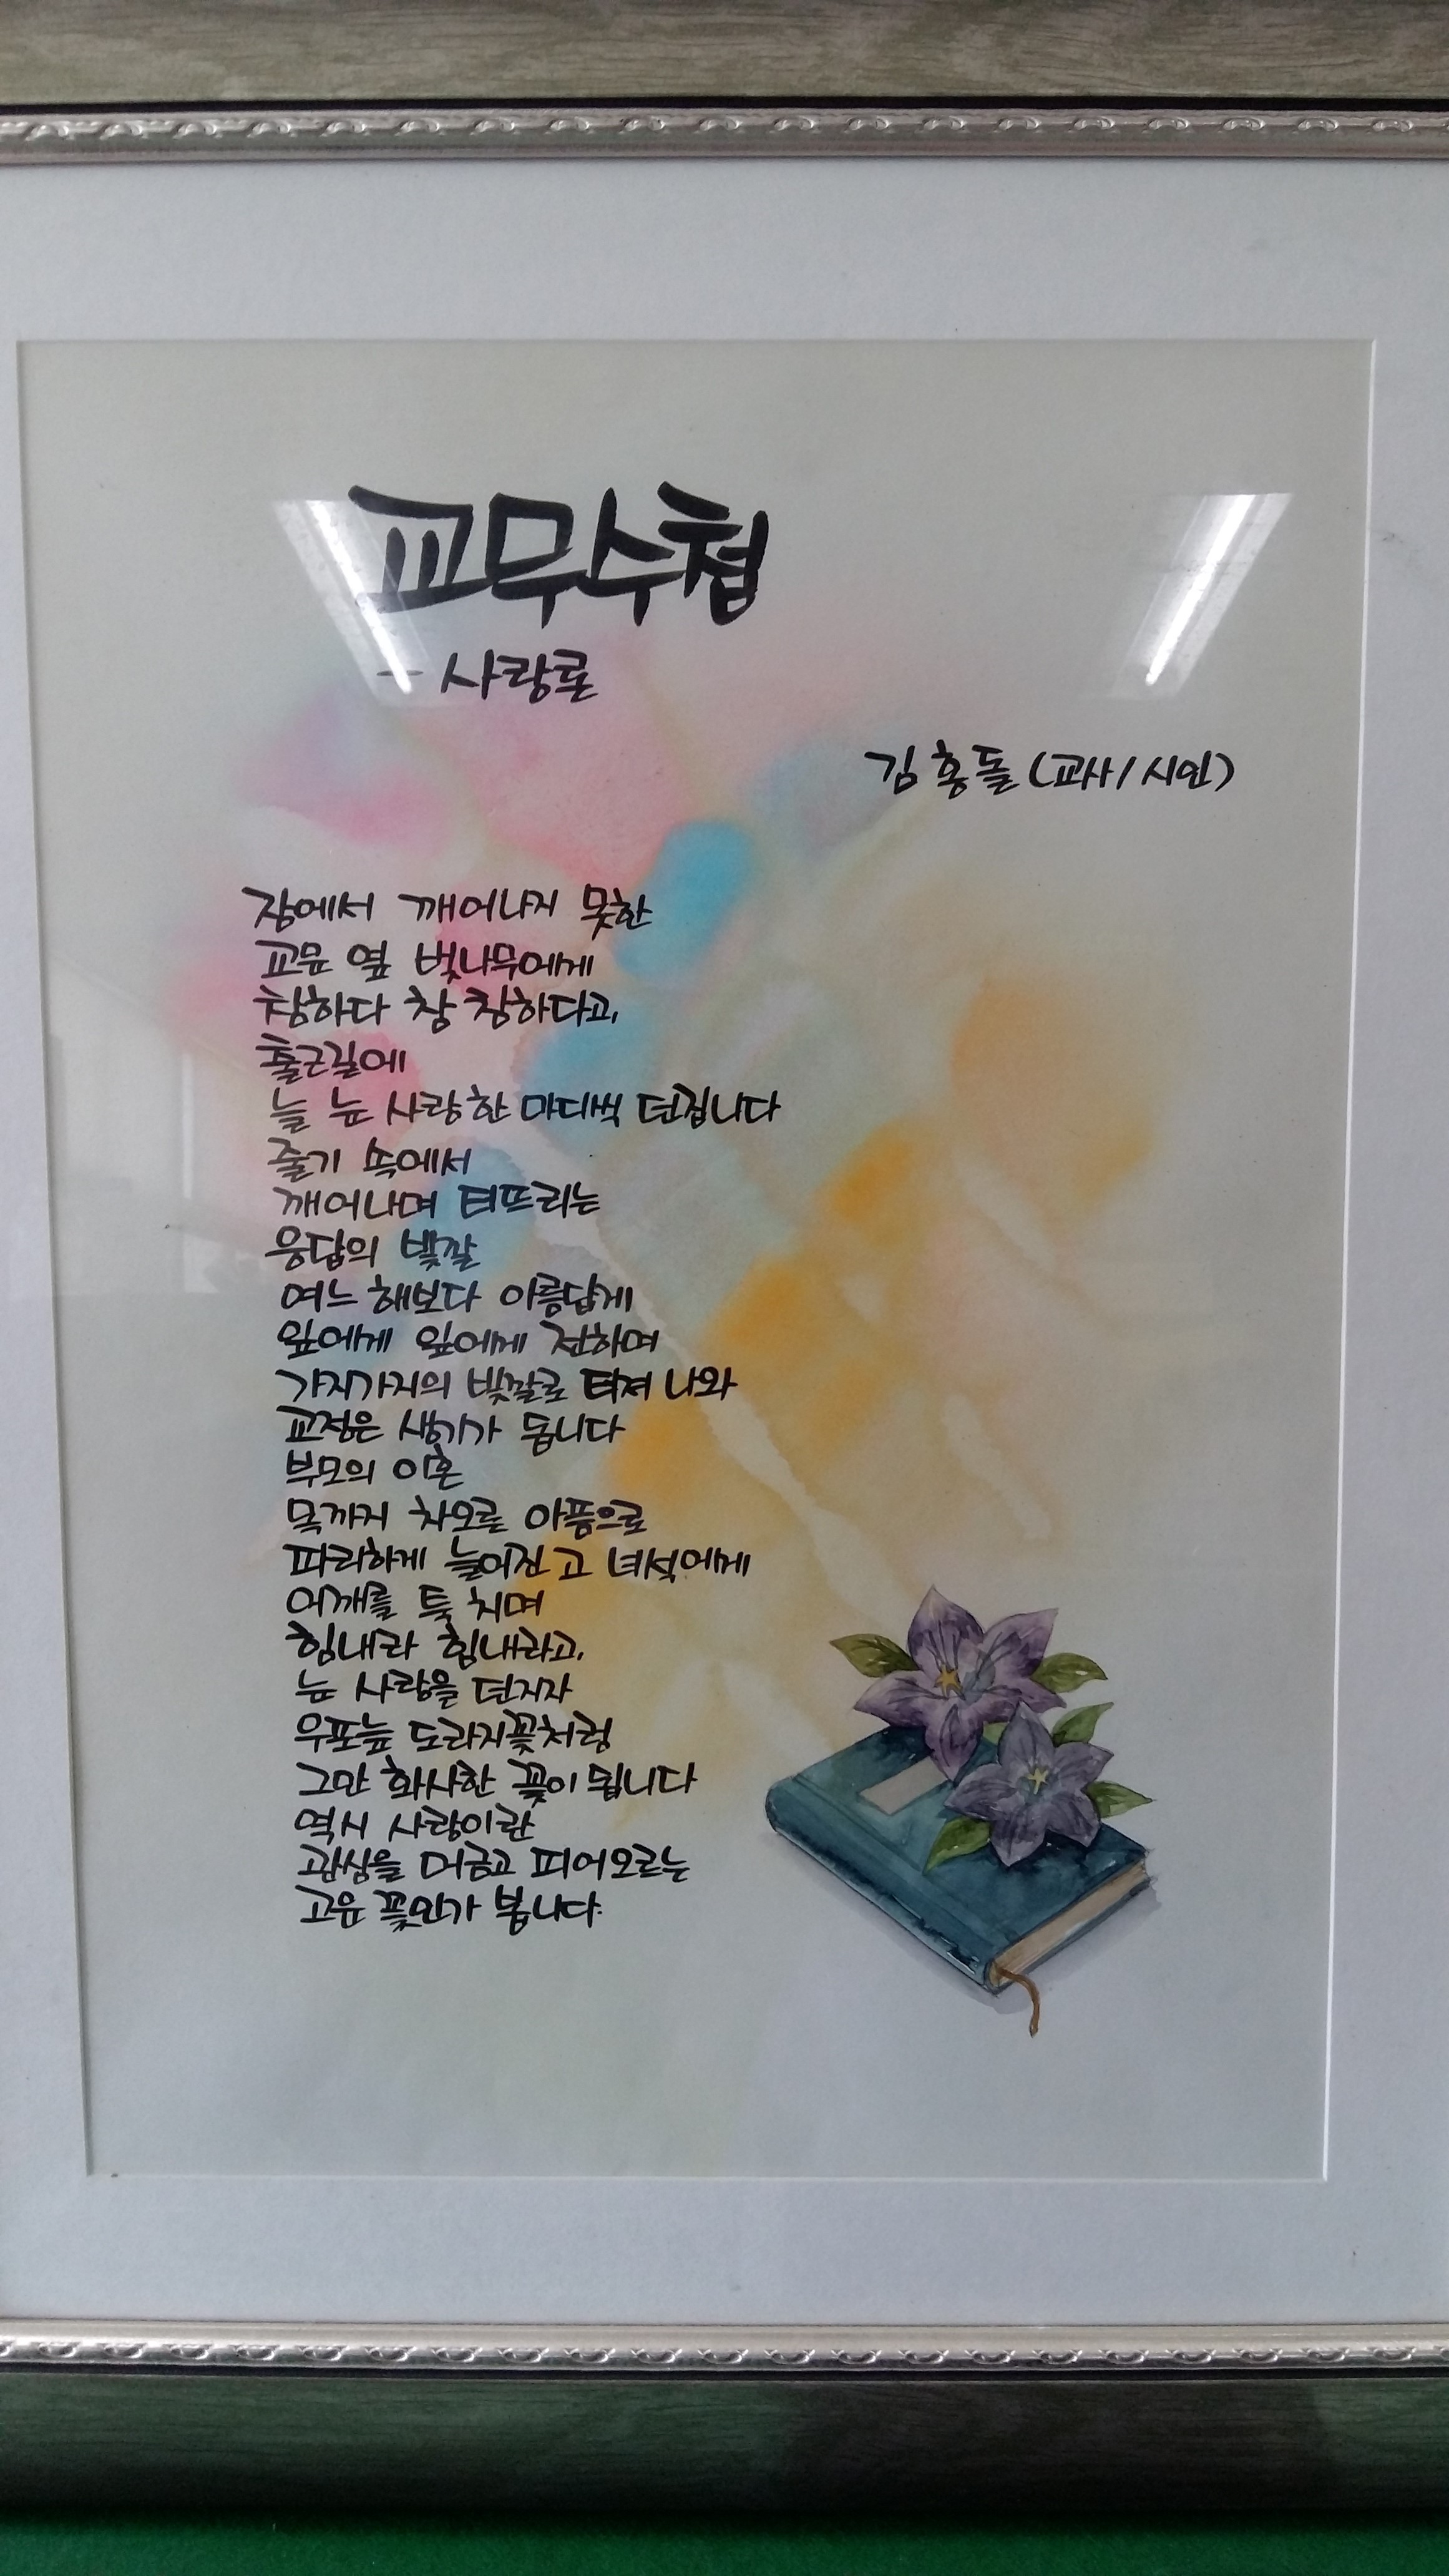 교무수첩
- 사랑론
김홍돌 (교사/시인)
잠에서 깨어나지 못한
교문 옆 벚나무에게
참하다 참 참하다고,
출근길에
늘 눈 사랑 한 마디씩 던집니다
줄기 속에서
깨어나며 터뜨리는
응답의 빛깔
여느 해보다 아름답게
잎에게 잎에게 전하며
가지가지의 빛깔로 터져 나와
교정은 생기가 돕니다
부모의 이혼
목까지 차오른 아픔으로
파리하게 늘어진 고 녀석에게
어깨를 툭 치며
힘내라 힘내라고,
눈 사랑을 던지자
우포늪 도라지꽃처럼
그만 화사한 꽃이 됩니다
역시 사랑이란
관심을 머금고 피어오르는
고운 꽃인가 봅니다.